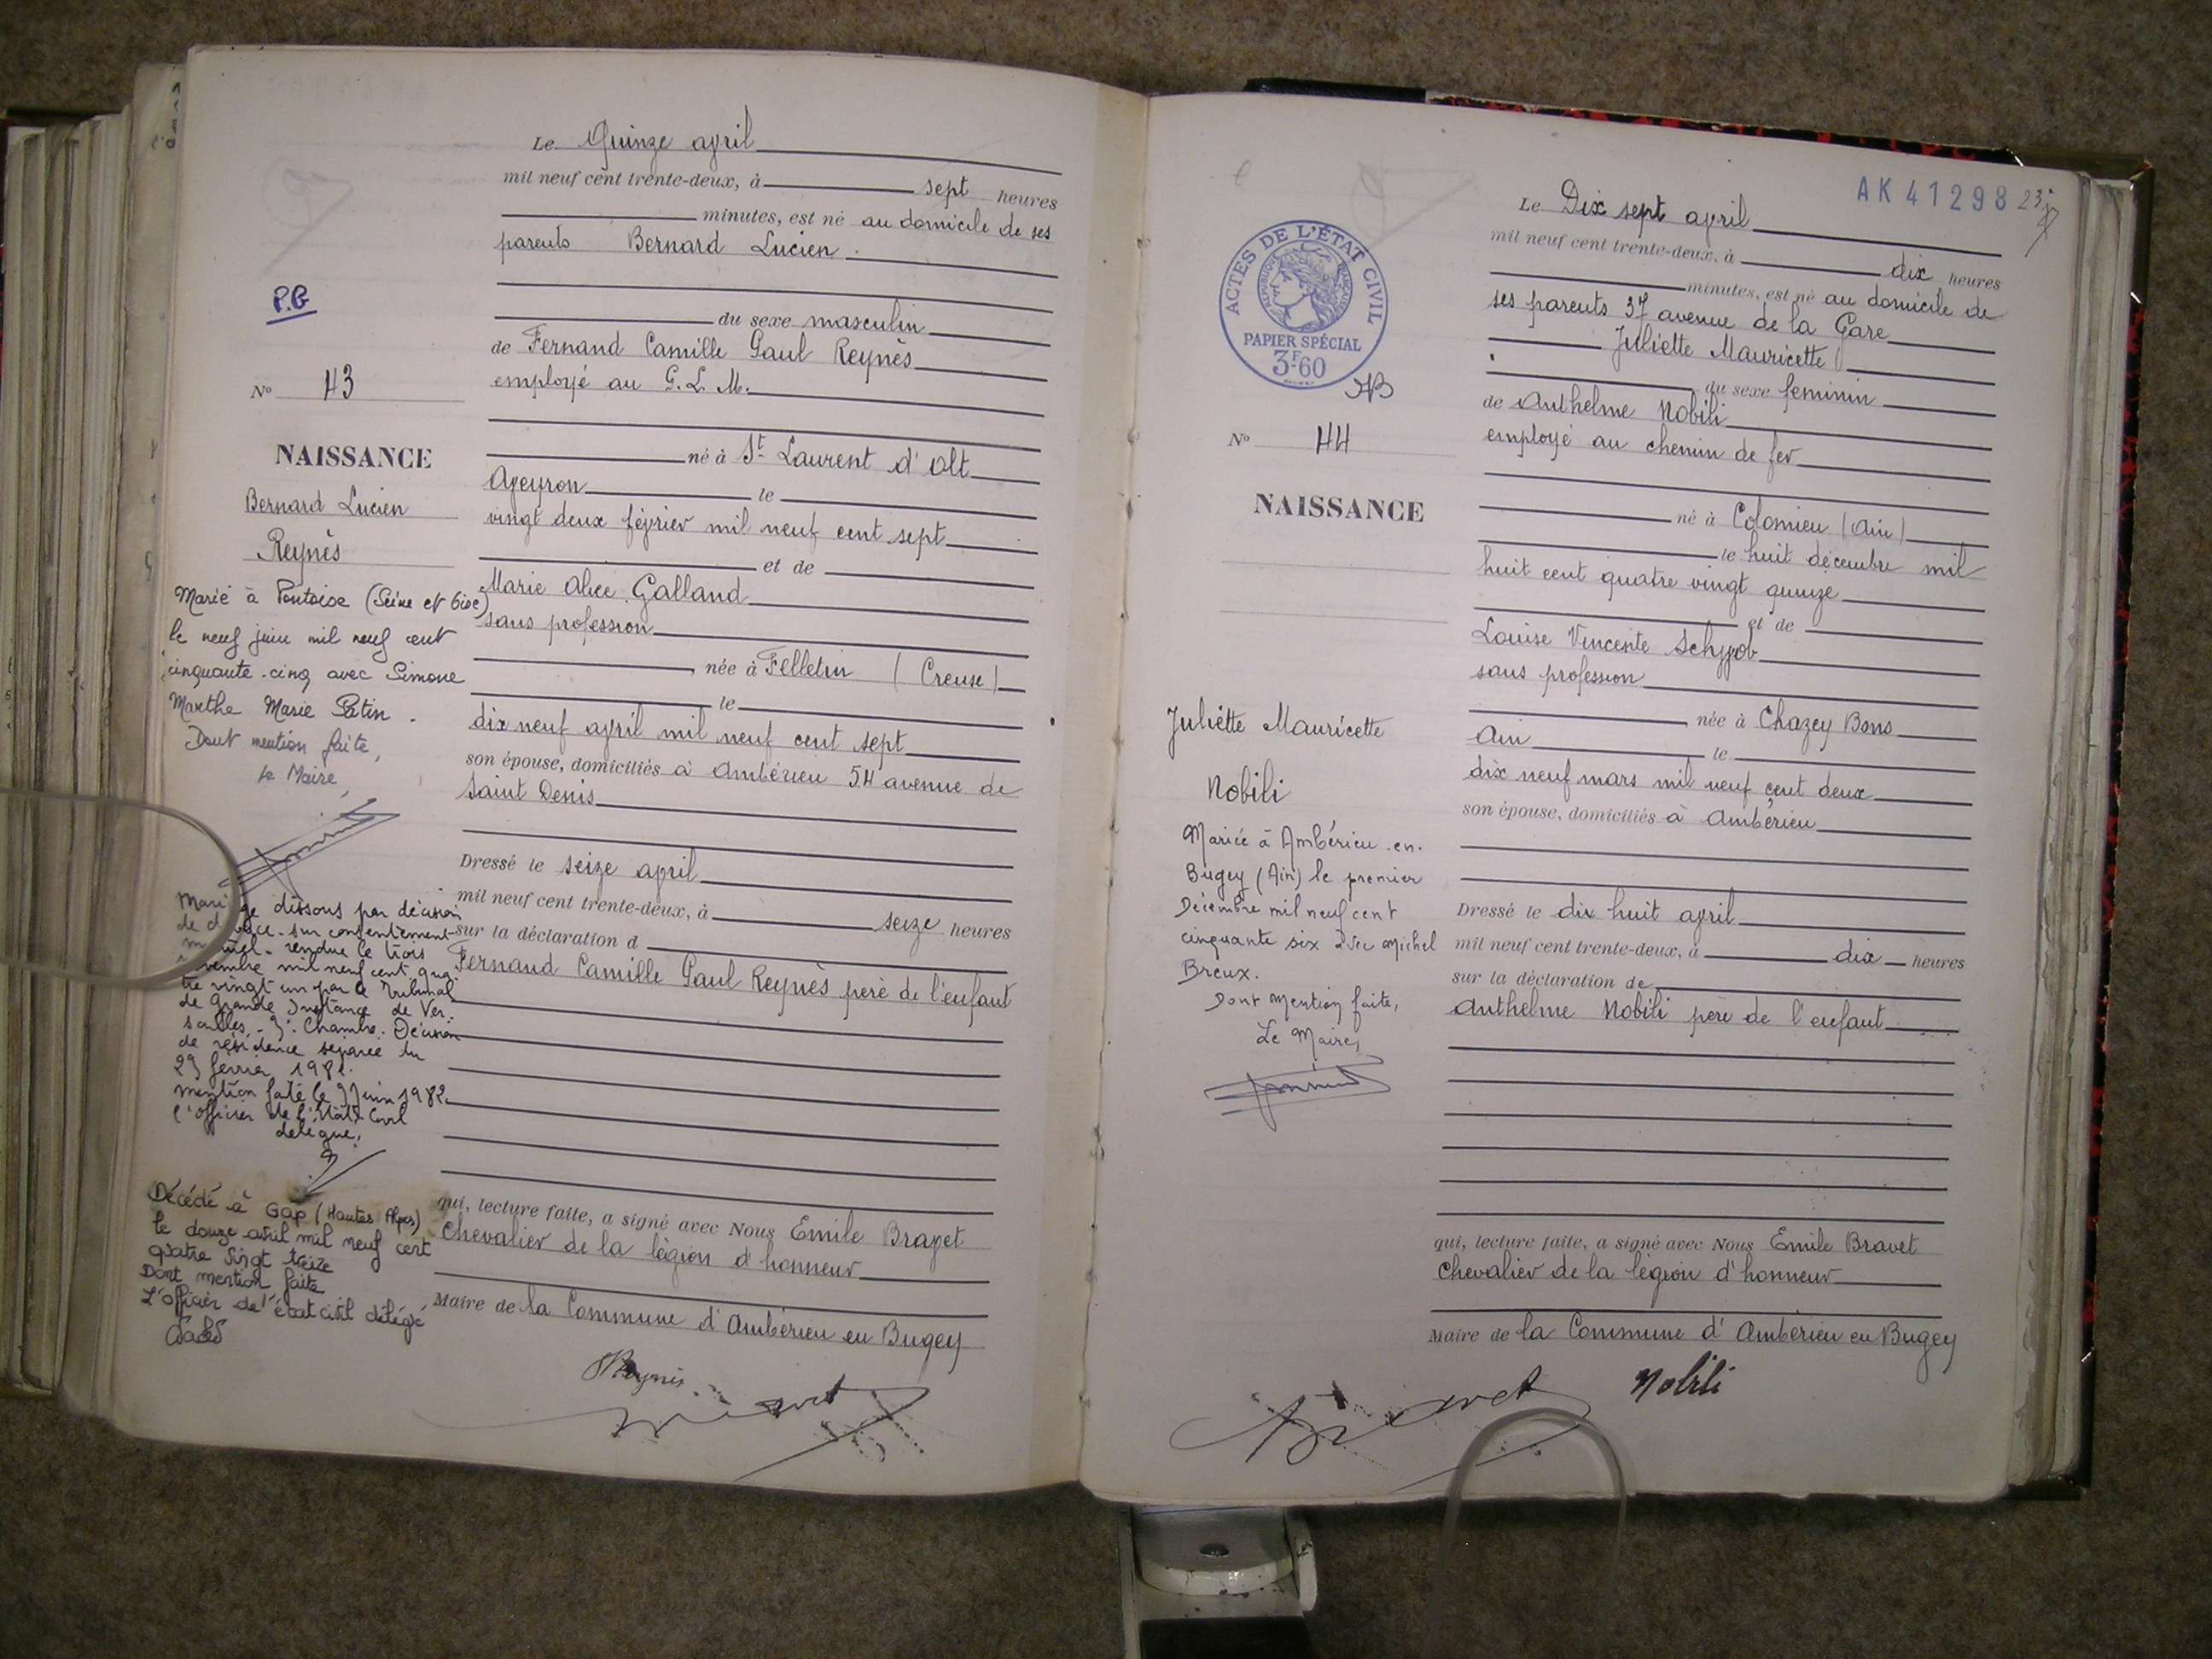 Le Quinze avril
mil neuf cent trente-deux, à sept heures
minutes, est né au domicile de ses
parents Bernard Lucien
du sexe masculin
de Fernand Camille Paul Reynès
employé au P.L.M.
né à St Laurent d'Olt
Aveyron le
vingt deux février mil neuf cent sept
et de
Marie Alice Galland
sans profession
née à Felletin (Creuse)
le
dix neuf avril mil neuf cent sept
son épouse, domiciliés à Ambérieu 54 avenue de
Saint Denis
Dressé le seize avril
mil neuf cent trente-deux, à seize heures
sur la déclaration d
Fernand Camille Paul Reynès père de l'enfant
qui, lecture faite, a signé avec Nous Emile Bravet
Chevalier de la légion d'honneur
Maire de la Commune d'Ambérieu en Bugey
Reynès
P.B
No 43
NAISSANCE
Bernard Lucien
Reynès
Marié à Pontoise (Seine et Oise)
le neuf juin mil neuf cent
cinquante-cinq avec Simone
Marthe Marie Patin.
Dont mention faite,
le Maire,
Mariage dissous par décision
de divorce sur consentement
mutuel rendue le trois
novembre mil neuf cent qua
tre vingt un par le Tribunal
de Grande Instance de Ver.
sailles - 3e Chambre. Décision
de résidence séparée du
février 1981.
mention faite le 9 Juin 1982
l'officier de l'état civil
délégué,
Décédé à Gap (Hautes Alpes)
le douze avril mil neuf cent
quatre vingt treize
Dont mention faite
L'officier de l'état civil délégué
AK 41298
Le Dix sept avril
mil neuf cent trente-deux, à dix heures
minutes, est né au domicile de
ses parents 37 avenue de la Gare
Juliette Mauricette
du sexe feminin
de Anthelme Nobili
employé au chemin de fer
né à Colomieu (Ain)
le huit décembre mil
huit cent quatre vingt quinze
et de
Louise Vincente
sans profession
née à Chazey Bons
Ain le
dix neuf mars mil neuf cent deux
son épouse, domiciliés à Ambérieu
Dressé le dix huit avril
mil neuf cent trente-deux, à dix heures
sur la déclaration de
Anthelme Nobili père de l'enfant
qui, lecture faite, a signé avec Nous Emile Bravet
Chevalier de la légion d'honneur
Maire de la Commune d'Ambérieu en Bugey
Nobili
ACTES DE L'ÉTAT CIVIL
RÉPUBLIQUE FRANÇAISE
PAPIER SPÉCIAL
3F60
No 44
NAISSANCE
Juliette Mauricette
Nobili
Mariée à Ambérieu-en-
Bugey (Ain) le premier
Décembre mil neuf cent
cinquante six avec Michel
Breux.
Dont mention faite,
Le Maire,